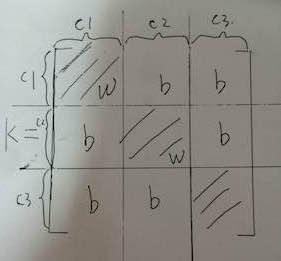 C1 C2 C3.
C1 W b b
K = C2 b W b
C3 b b